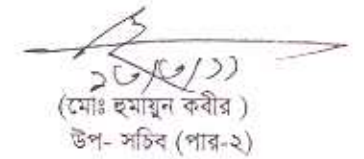 ১৩/৩/১১
(মোঃ হুমায়ুন কবীর )
উপ- সচিব (পার-২)